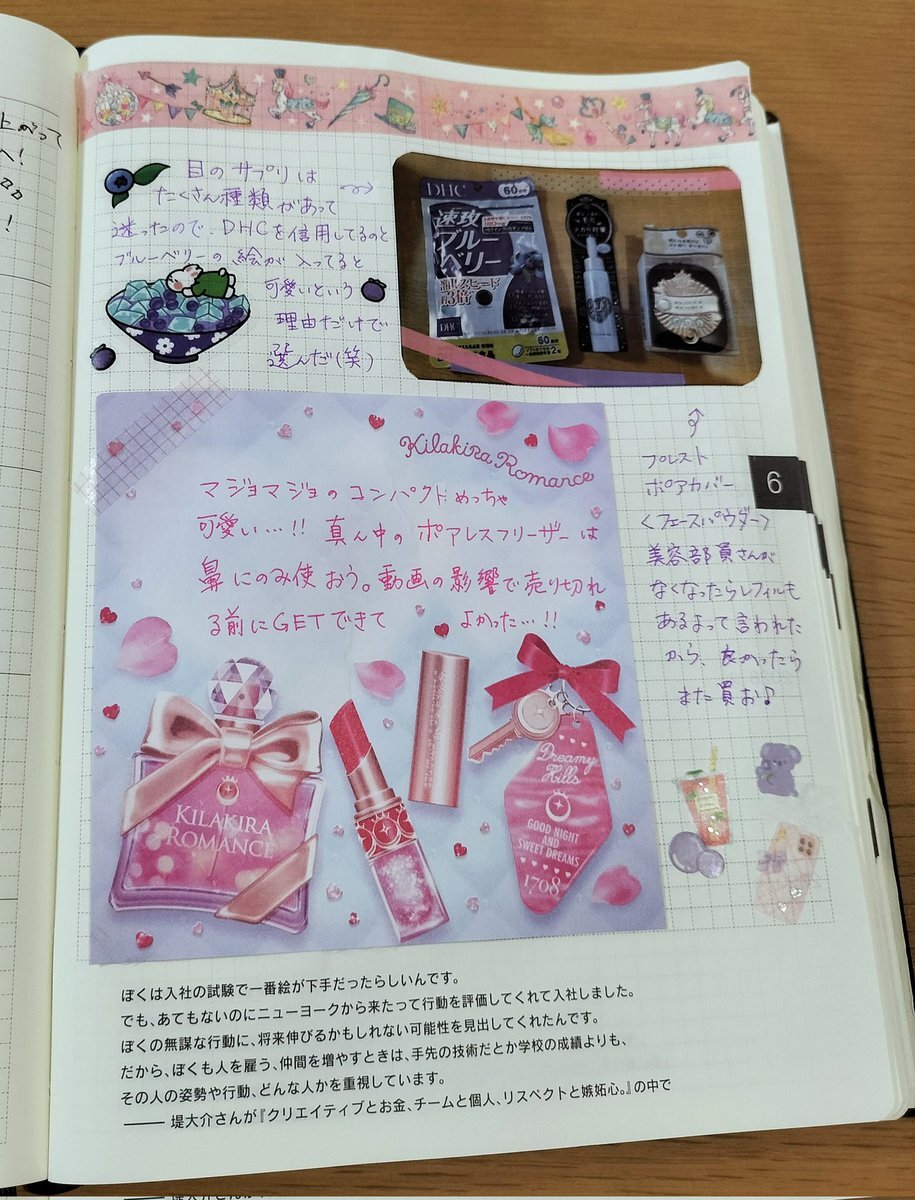 上がって
へ!
!
目のサプリは
たくさん種類があって
迷ったので、DHCを信用してるのと
ブルーベリーの絵が入ってると
可愛いという
理由だけで
選んだ(笑)
DHC
60日分
速攻
ブルー
ベリー
約3倍
DHC
60日分
Kilakira Romance
マジョマジョのコンパクトめっちゃ
可愛い…!! 真ん中のポアレスフリーザーは
鼻にのみ使おう。動画の影響で売り切れ
る前にGETできて よかった…!!
KILAKIRA
ROMANCE
Dreamy
Hills
GOOD NIGHT
AND
SWEET DREAMS
1708
プレスト
ポアカバー
<フェースパウダー>
美容部員さんが
なくなったらレフィルも
あるよって言われた
から、良かったら
また買お♪
6
ぼくは入社の試験で一番絵が下手だったらしいんです。
でも、あてもないのにニューヨークから来たって行動を評価してくれて入社しました。
ぼくの無謀な行動に、将来伸びるかもしれない可能性を見出してくれたんです。
だから、ぼくも人を雇う、仲間を増やすときは、手先の技術だとか学校の成績よりも、
その人の姿勢や行動、どんな人かを重視しています。
―― 堤大介さんが『クリエイティブとお金、チームと個人、リスペクトと嫉妬心。』の中で